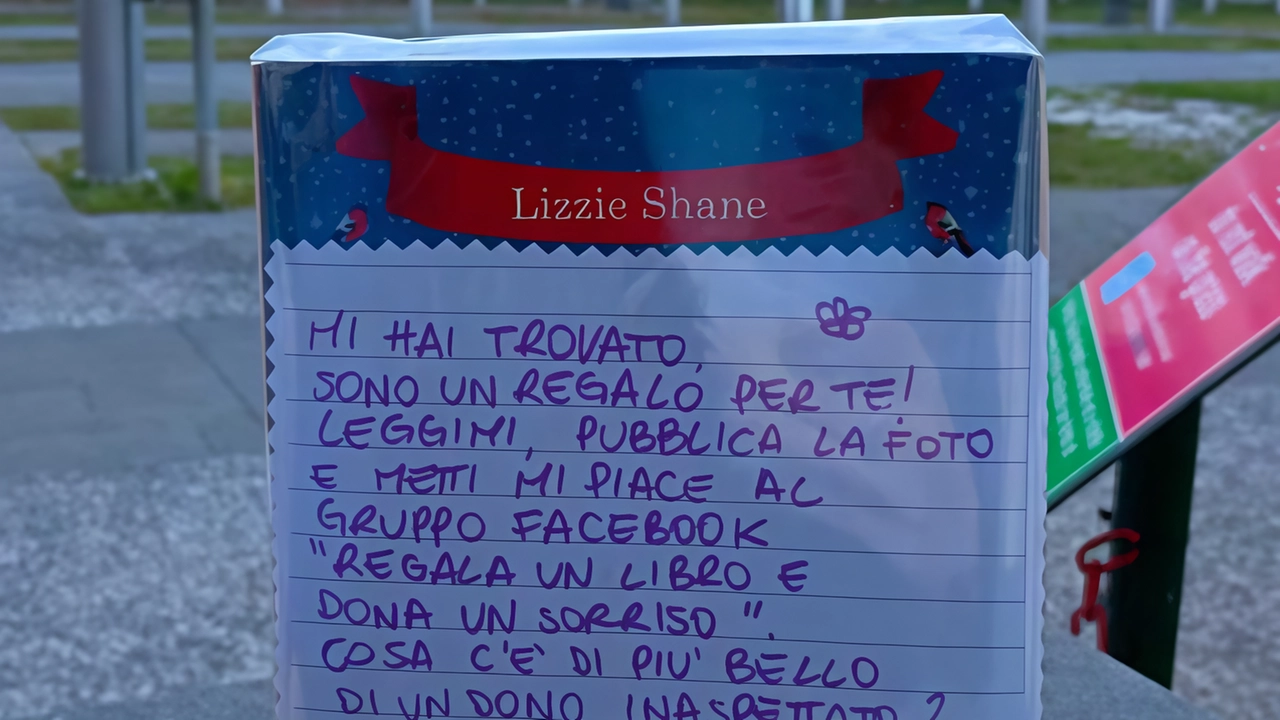 Lizzie Shane
MI HAI TROVATO,
SONO UN REGALO PER TE!
LEGGIMI, PUBBLICA LA FOTO
E METTI MI PIACE AL
GRUPPO FACEBOOK
"REGALA UN LIBRO E
DONA UN SORRISO".
COSA C'E' DI PIU' BELLO
DI UN DONO INASPETTATO?